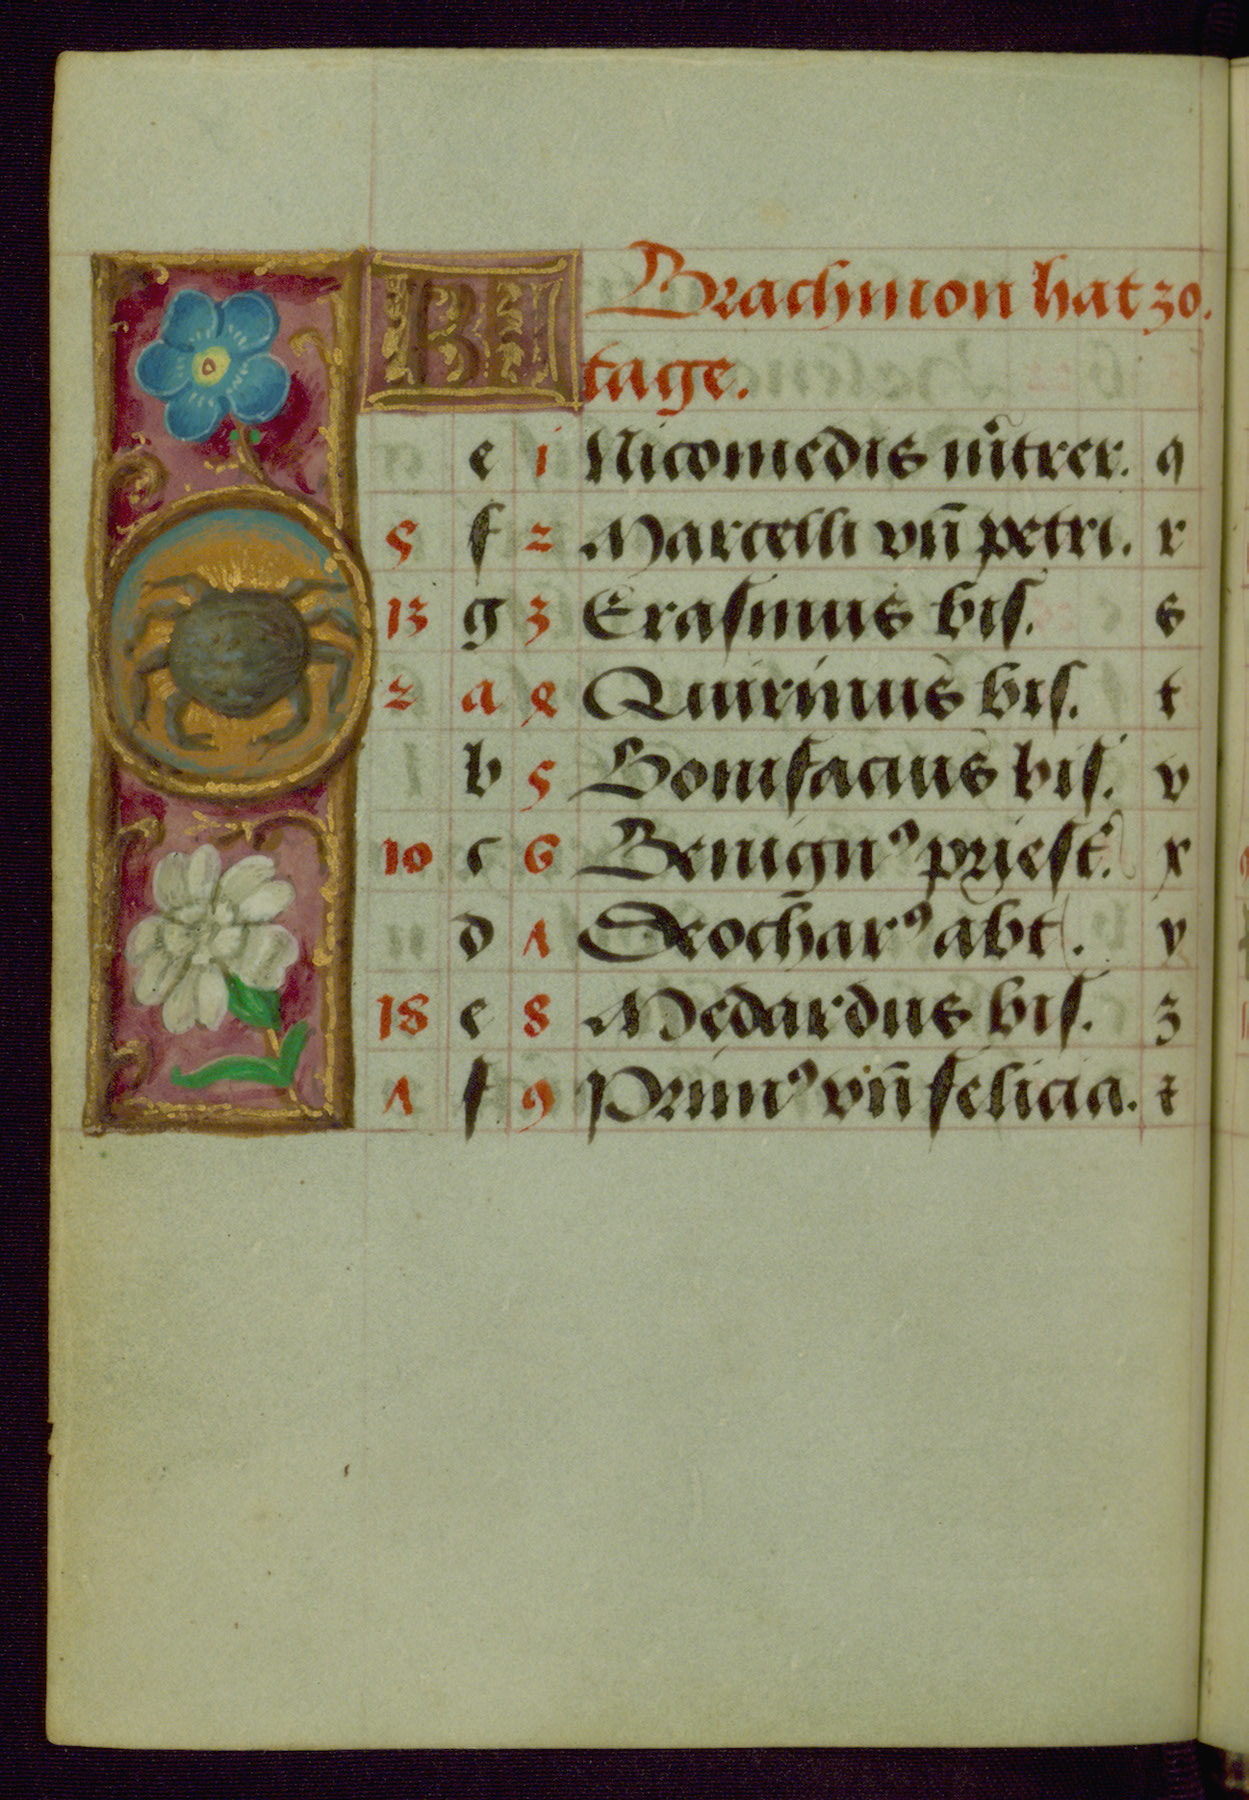 KL Brachmon hat 30.
tage.
e 1 Nicomedis m̃trer. q
5 f 2 Marcelli vñ petri. r
13 g 3 Erasmus bis. s
2 a 4 Quirinus bis. t
b 5 Bonifacius bis. v
10 c 6 Benignꝰ priest̃. x
d 7 Deochãrꝰ abt. y
18 e 8 Medardus bis. z
7 f 9 Primꝰ vñ felicia. ꝛ